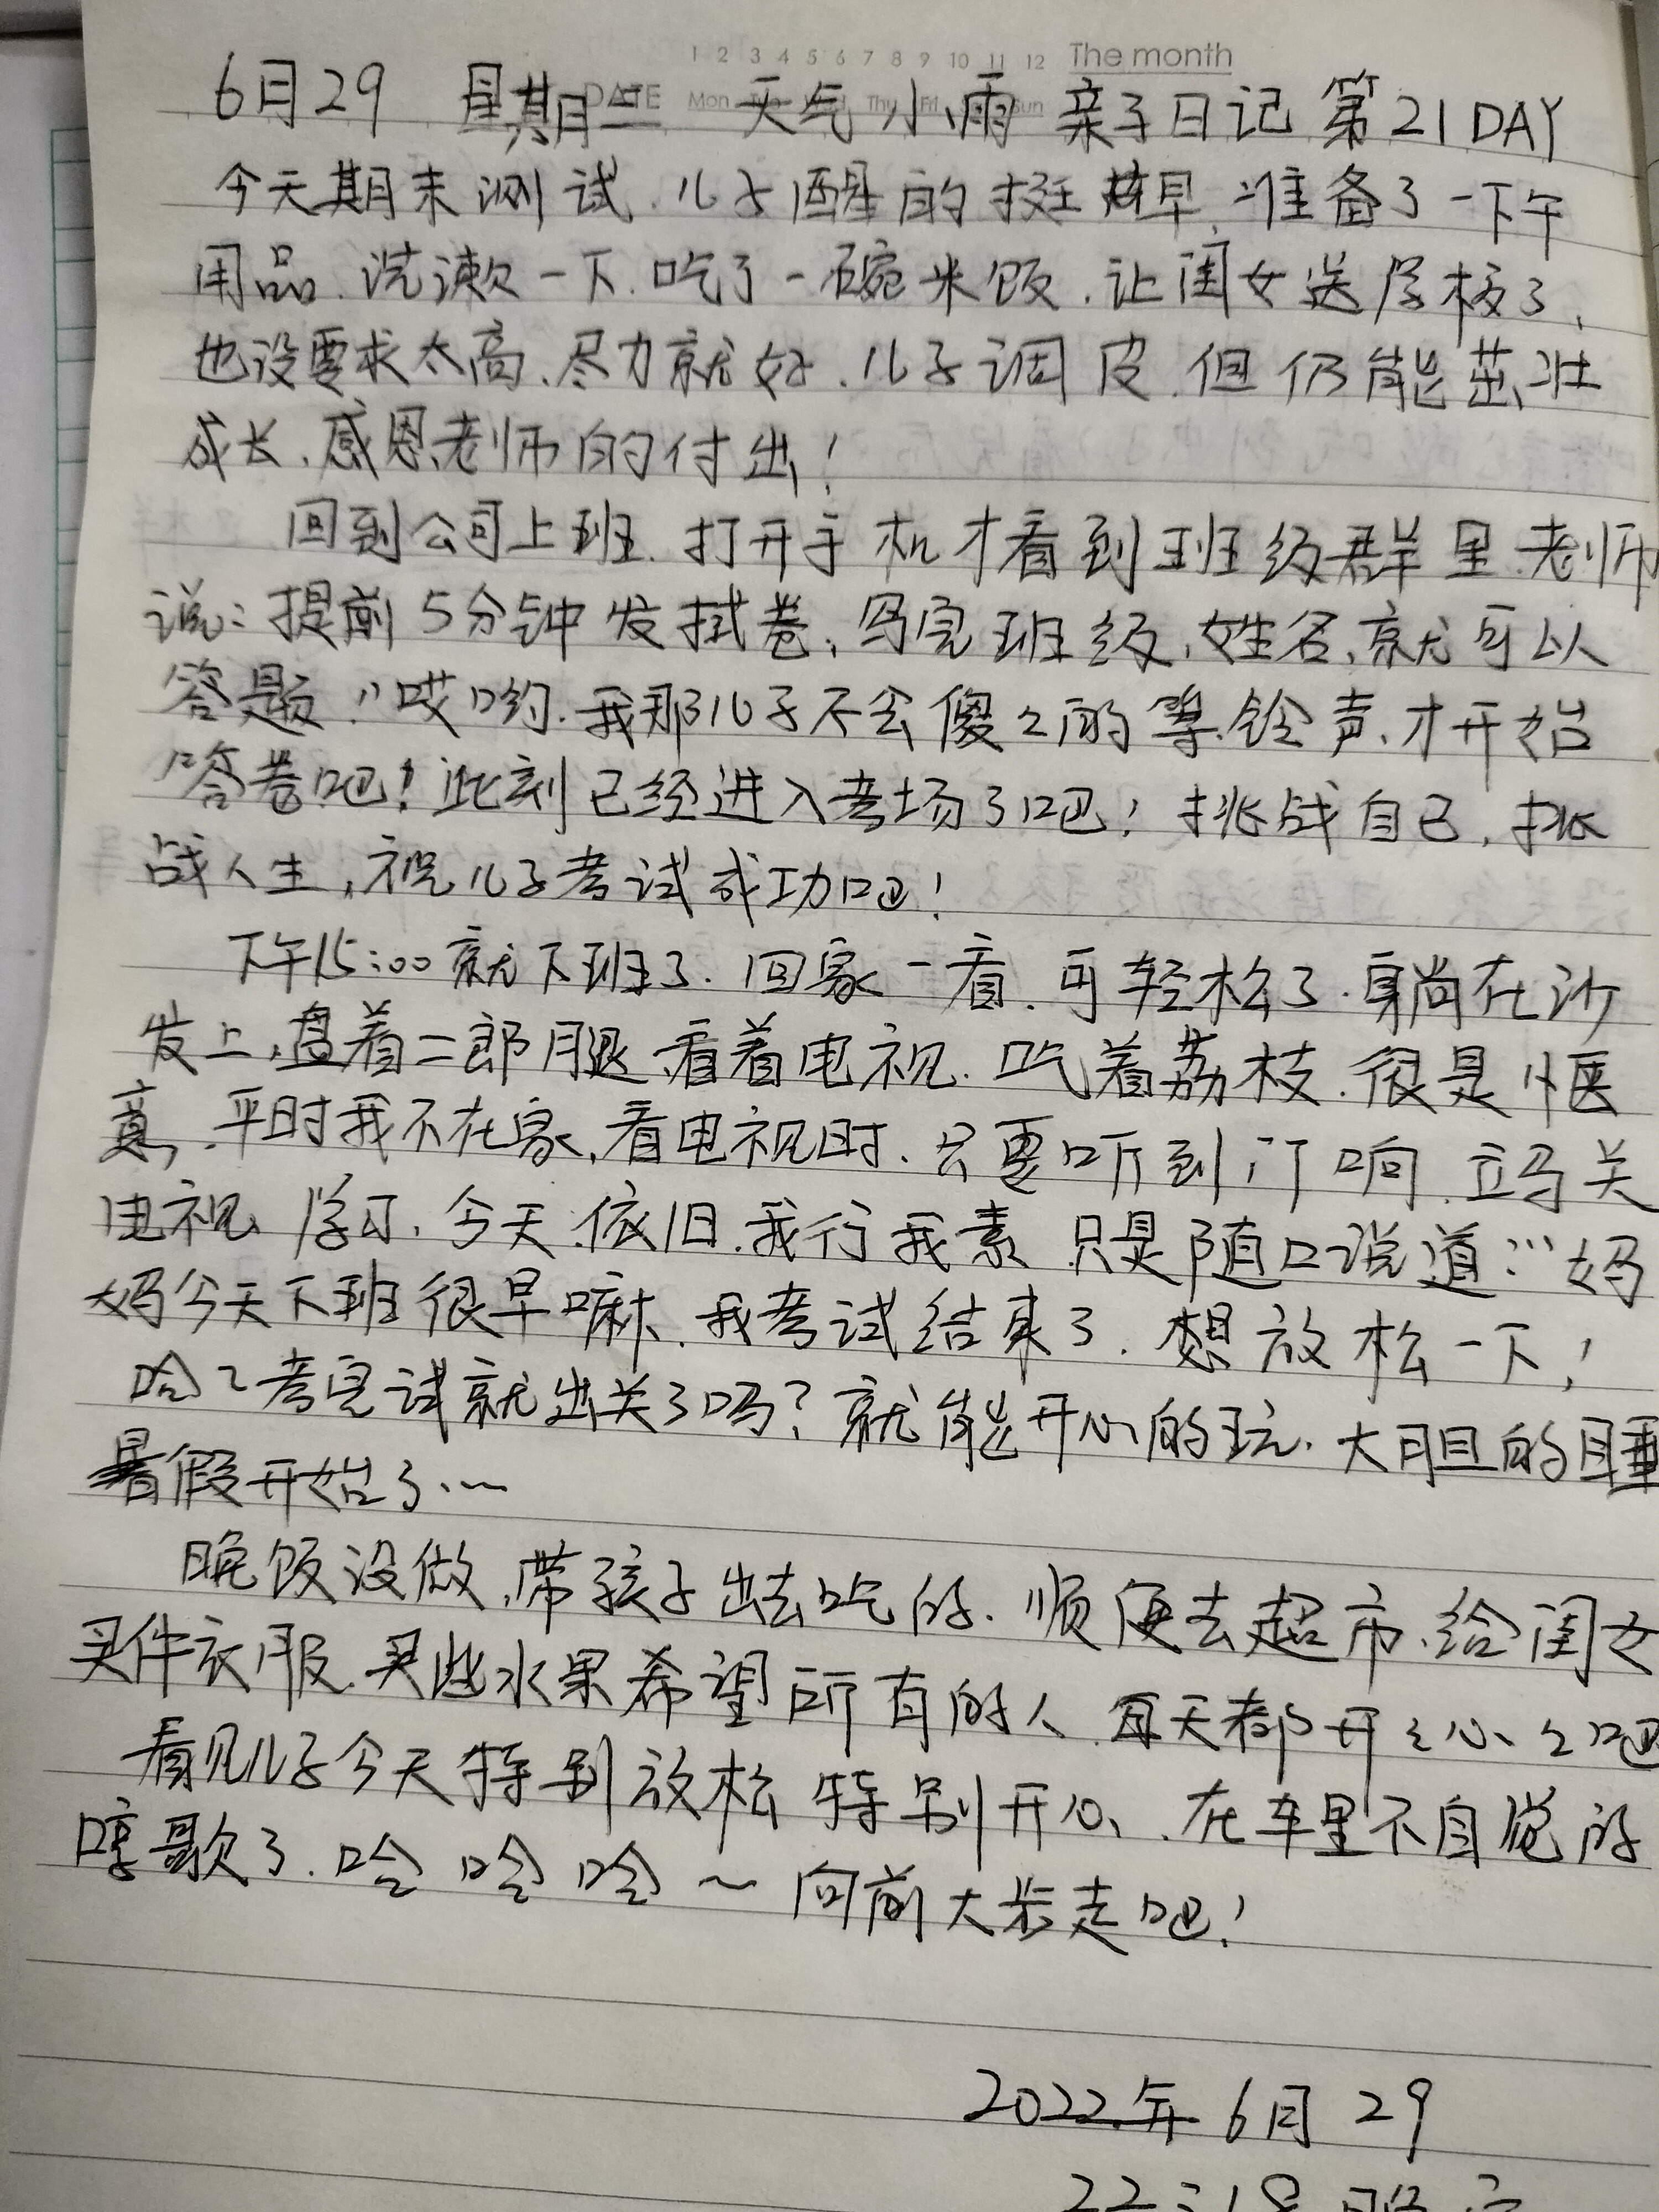 1 2 3 4 5 6 7 8 9 10 11 12 The month
DATE Mon Tue Wed Thu Fri Sun
6月29 星期三 天气 小雨 亲子日记 第21DAY
今天期末测试.儿子醒的挺早.准备了一下午
用品.洗漱一下.吃了一碗米饭.让闺女送学校了、
也没要求太高、尽力就好.儿子调皮.但仍能茁壮
成长、感恩老师的付出!
回到公司上班.打开手机才看到班级群里老师
说:提前5分钟发拭卷,写完班级,姓名,就可以
答题!"哎哟.我那儿子不会傻々的等铃声、才开始
答卷吧!此刻已经进入考场了吧!挑战自己,挑
战人生,祝儿子考试成功吧!
下午15:00就下班了.回家一看.可轻松了.躺在沙
发上,盘着二郎腿.看着电视.吃着荔枝.很是惬
意,平时我不在家,看电视时.只要听到门响.立马关
电视 学习,今天依旧.我行我素 只是随口说道:"妈
妈今天下班很早嘛、我考试结束了.想放松一下!
哈々考完试就出关了吗?就能开心的玩.大胆的睡
暑假开始了、~
晚饭没做,带孩子出去吃的.顺便去超市、给闺女
买件衣服.买些水果希望所有的人.每天都开々心々吧
看见儿子今天特别放松 特别开心、.在车里不自觉的
哼歌了.哈哈哈~向前大步走吧!
2022年6月29
22:18